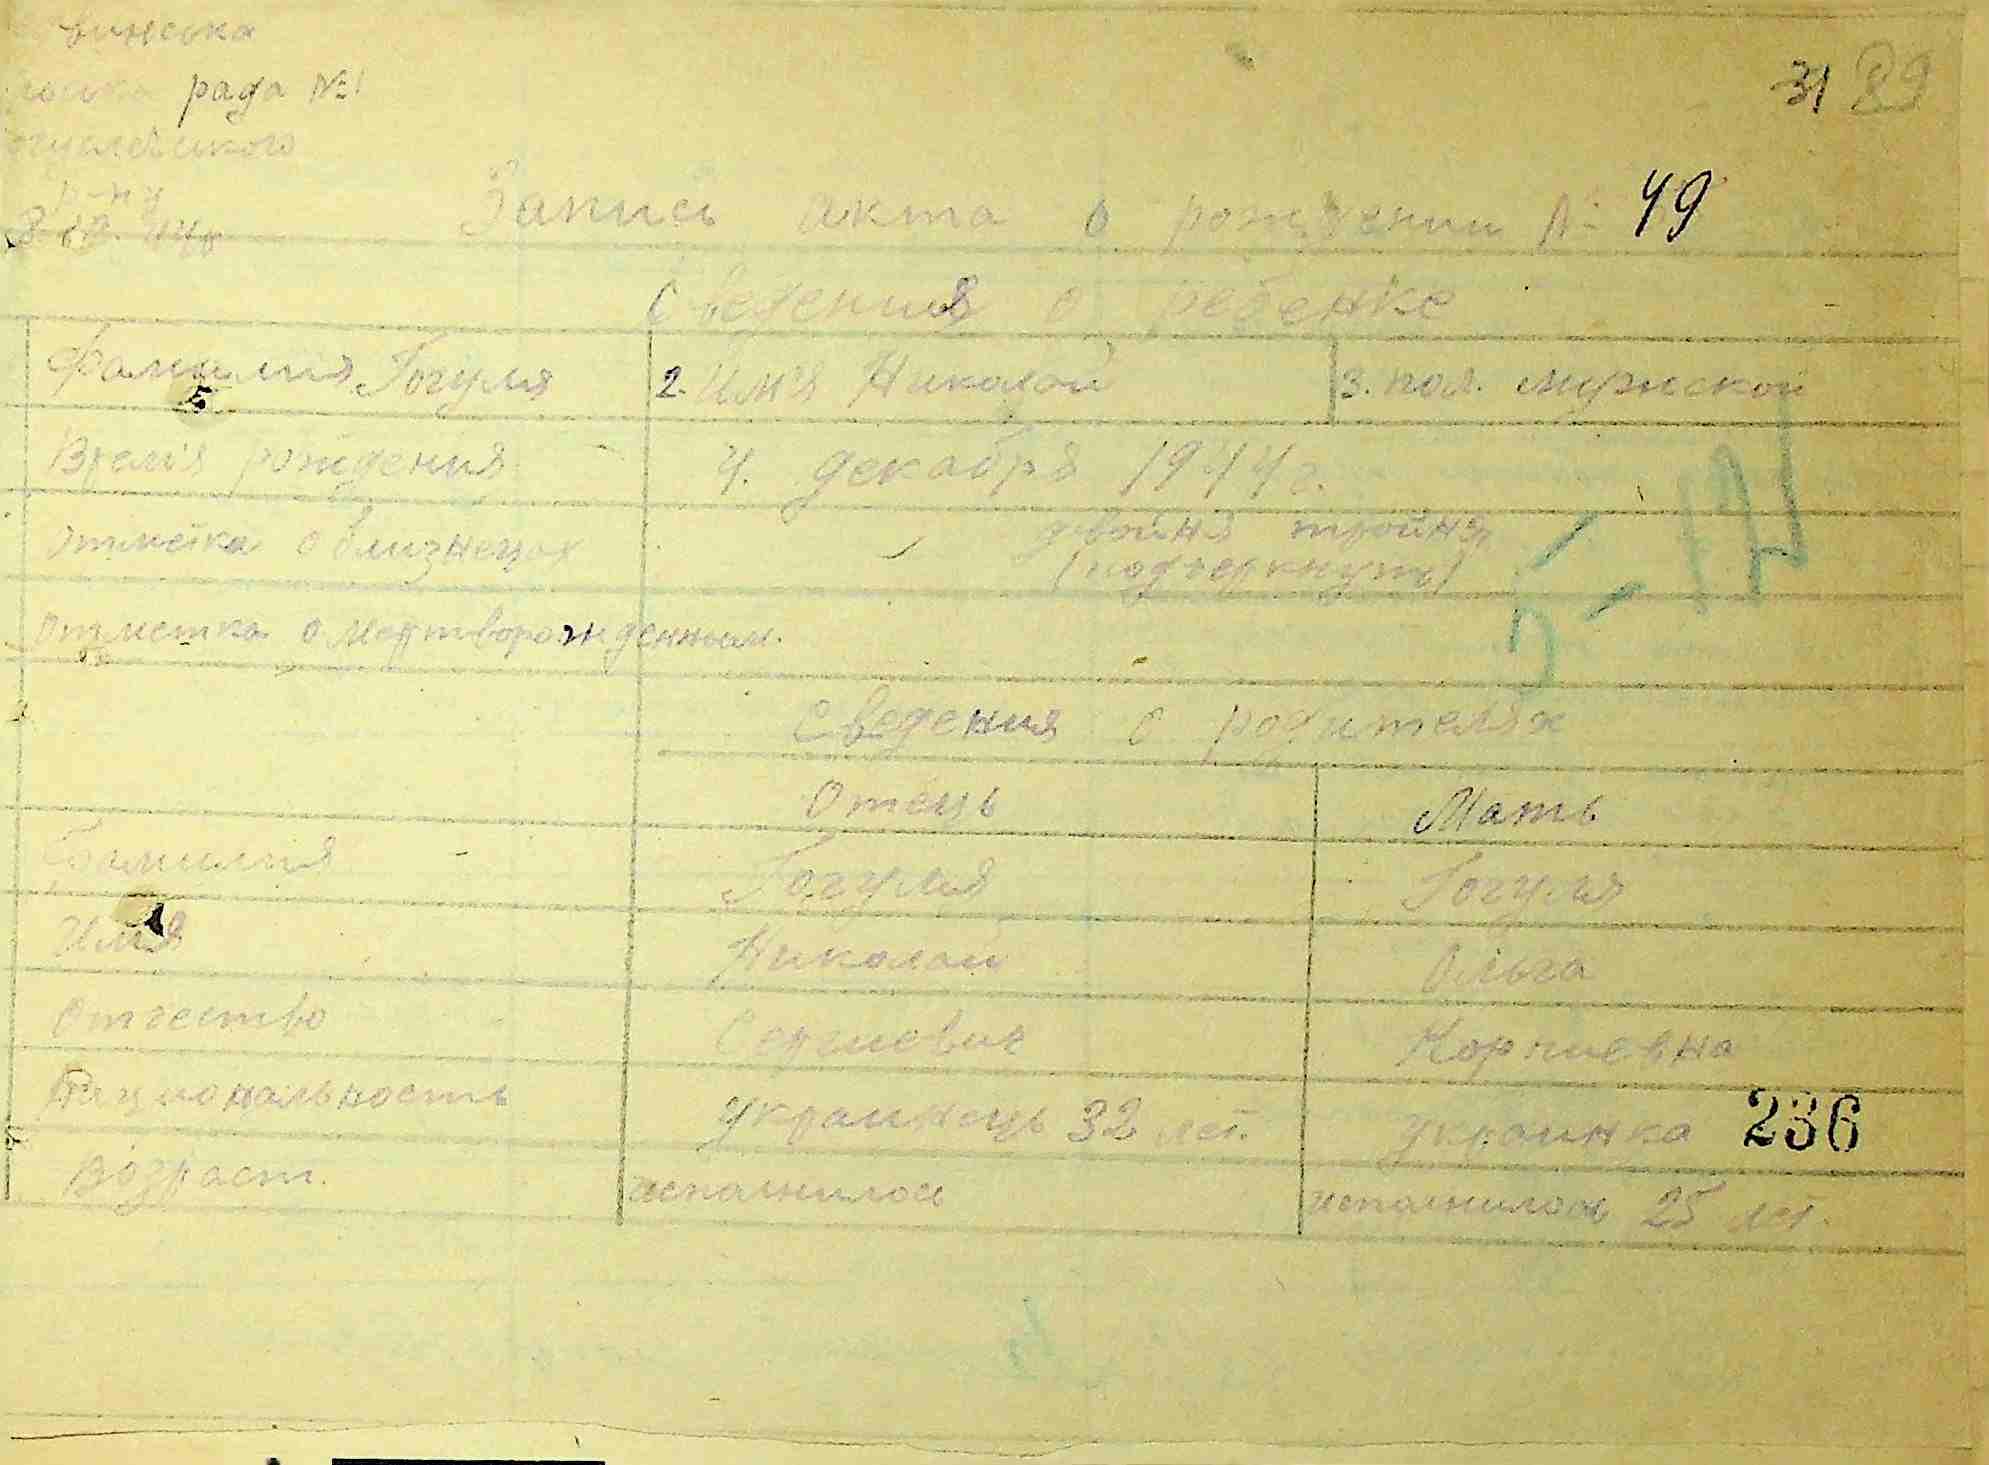 винська
рада №1
р-ну
31 89
Запись акта о рождении № 49
Сведения о ребенке
Фамилия Гогуля 2. Имя Николай 3. пол. мужской
Время рождения 4. декабря 1944 г.
Отметка о близнецах двойня тройня
(подчеркнуть)
Отметка о мертворожденном.
Сведения о родителях
Отець Мать
Фамилия Гогуля Гогуля
Имя Николай Ольга
Отчество Сергиевич Корниевна
Национальность украинець 32 лет. украинка 236
Возраст. исполнилось исполнилось 25 лет.